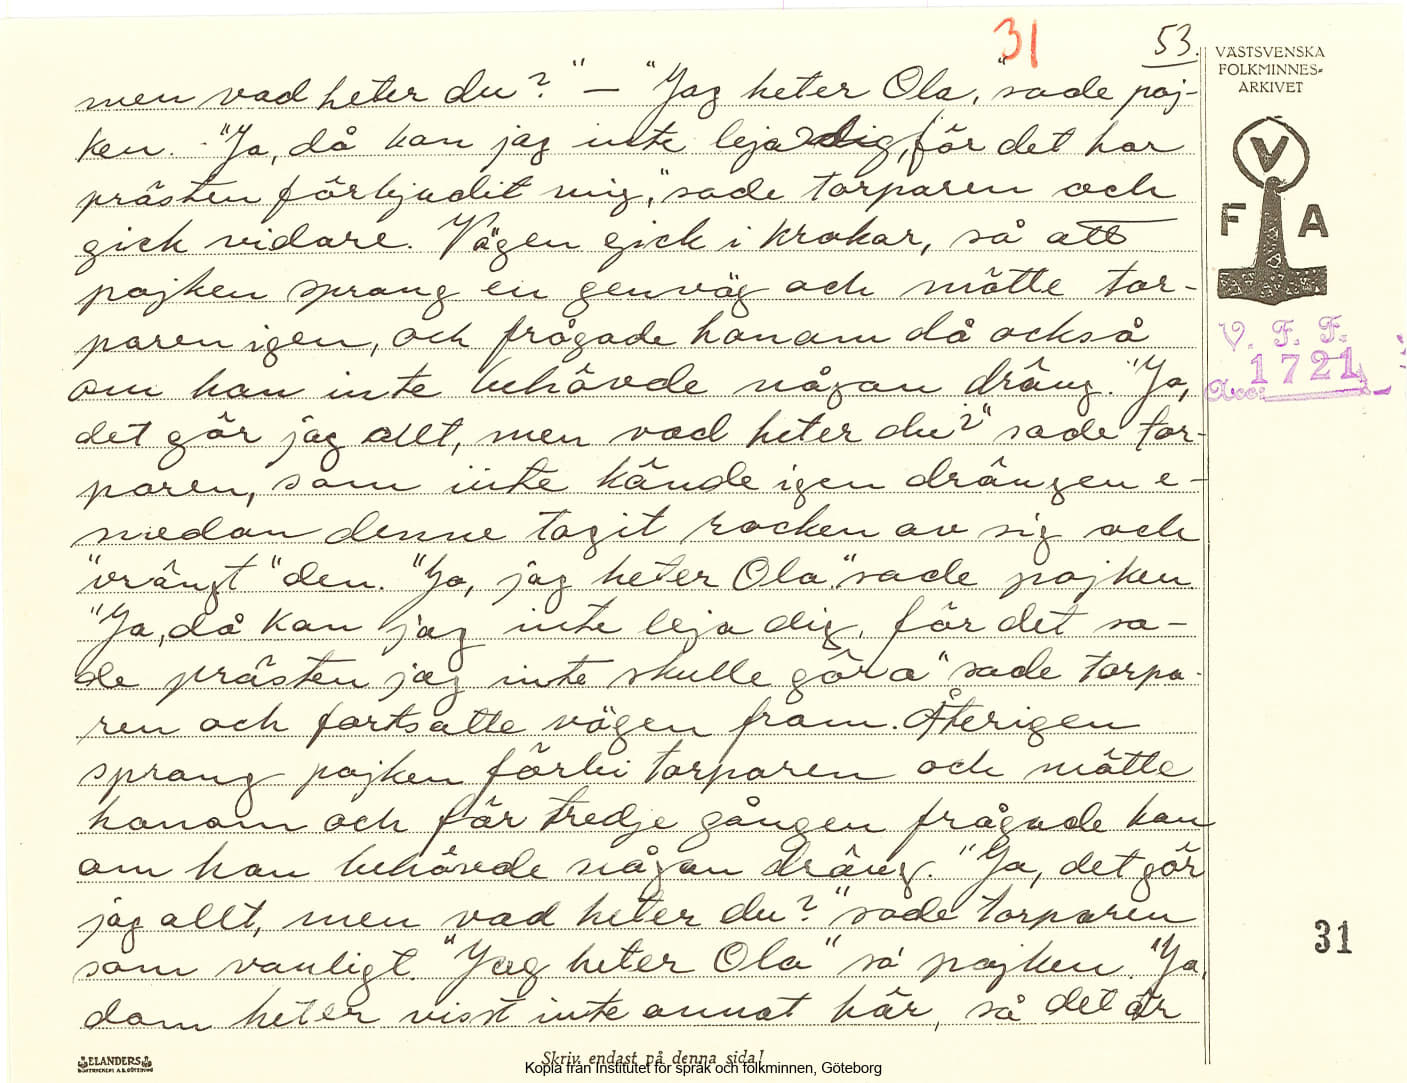 31
53.
VÄSTSVENSKA
FOLKMINNES-
ARKIVET
V
F A
V. F. F.
1721
Acc:
men vad heter du?" — "Jag heter Ola," sade poj-
ken. - "Ja, då kan jag inte leja dig, för det har
prästen förbjudit mig," sade torparen och
gick vidare. Vägen gick i krokar, så att
pojken sprang en genväg och mötte tor-
paren igen, och frågade honom då också
om han inte behövde någon dräng. "Ja,
det gör jag allt, men vad heter du?" sade tor-
paren, som inte kände igen drängen e-
medan denne tagit rocken av sig och
"vrängt" den. "Ja, jag heter Ola." sade pojken
"Ja, då kan jag inte leja dig, för det sa-
de prästen jag inte skulle göra" sade torpa-
ren och fortsatte vägen fram. Återigen
sprang pojken förbi torparen och mötte
honom och för tredje gången frågade han
om han behövde någon dräng. "Ja, det gör
jag allt, men vad heter du?" sade torparen
som vanligt. "Jag heter Ola" sa' pojken. "Ja,
dom heter visst inte annat här, så det är
31
ELANDERS
BOKTRYCKERI A.B. GÖTEBORG
Skriv endast på denna sida!
Kopia från Institutet för språk och folkminnen, Göteborg